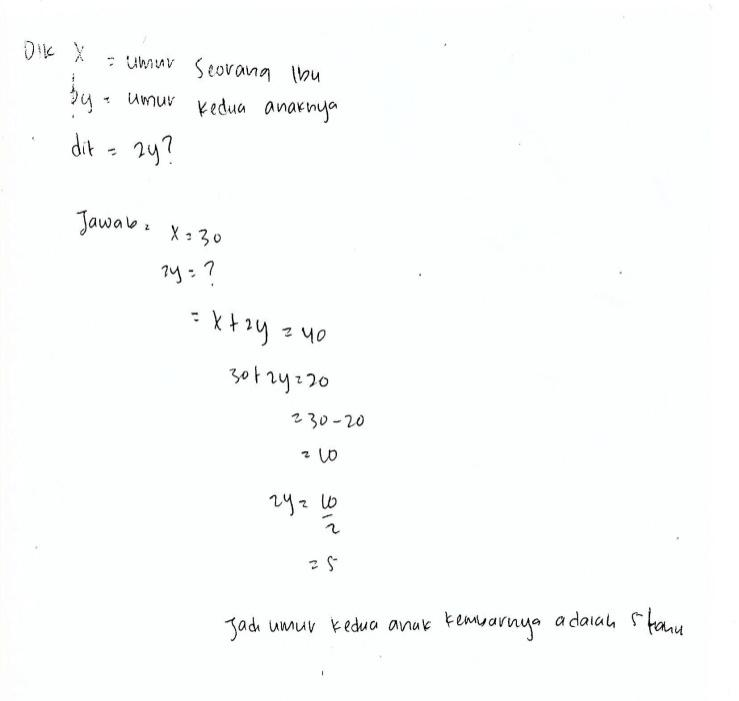 Dik X = umur seorang Ibu
2y = umur kedua anaknya
dit = 2y?
Jawab = X = 30
2y = ?
= X + 2y = 40
30 + 2y = 20
= 30 - 20
= 10
2y = 10
2
= 5
Jadi umur kedua anak kembarnya adalah 5 tahu